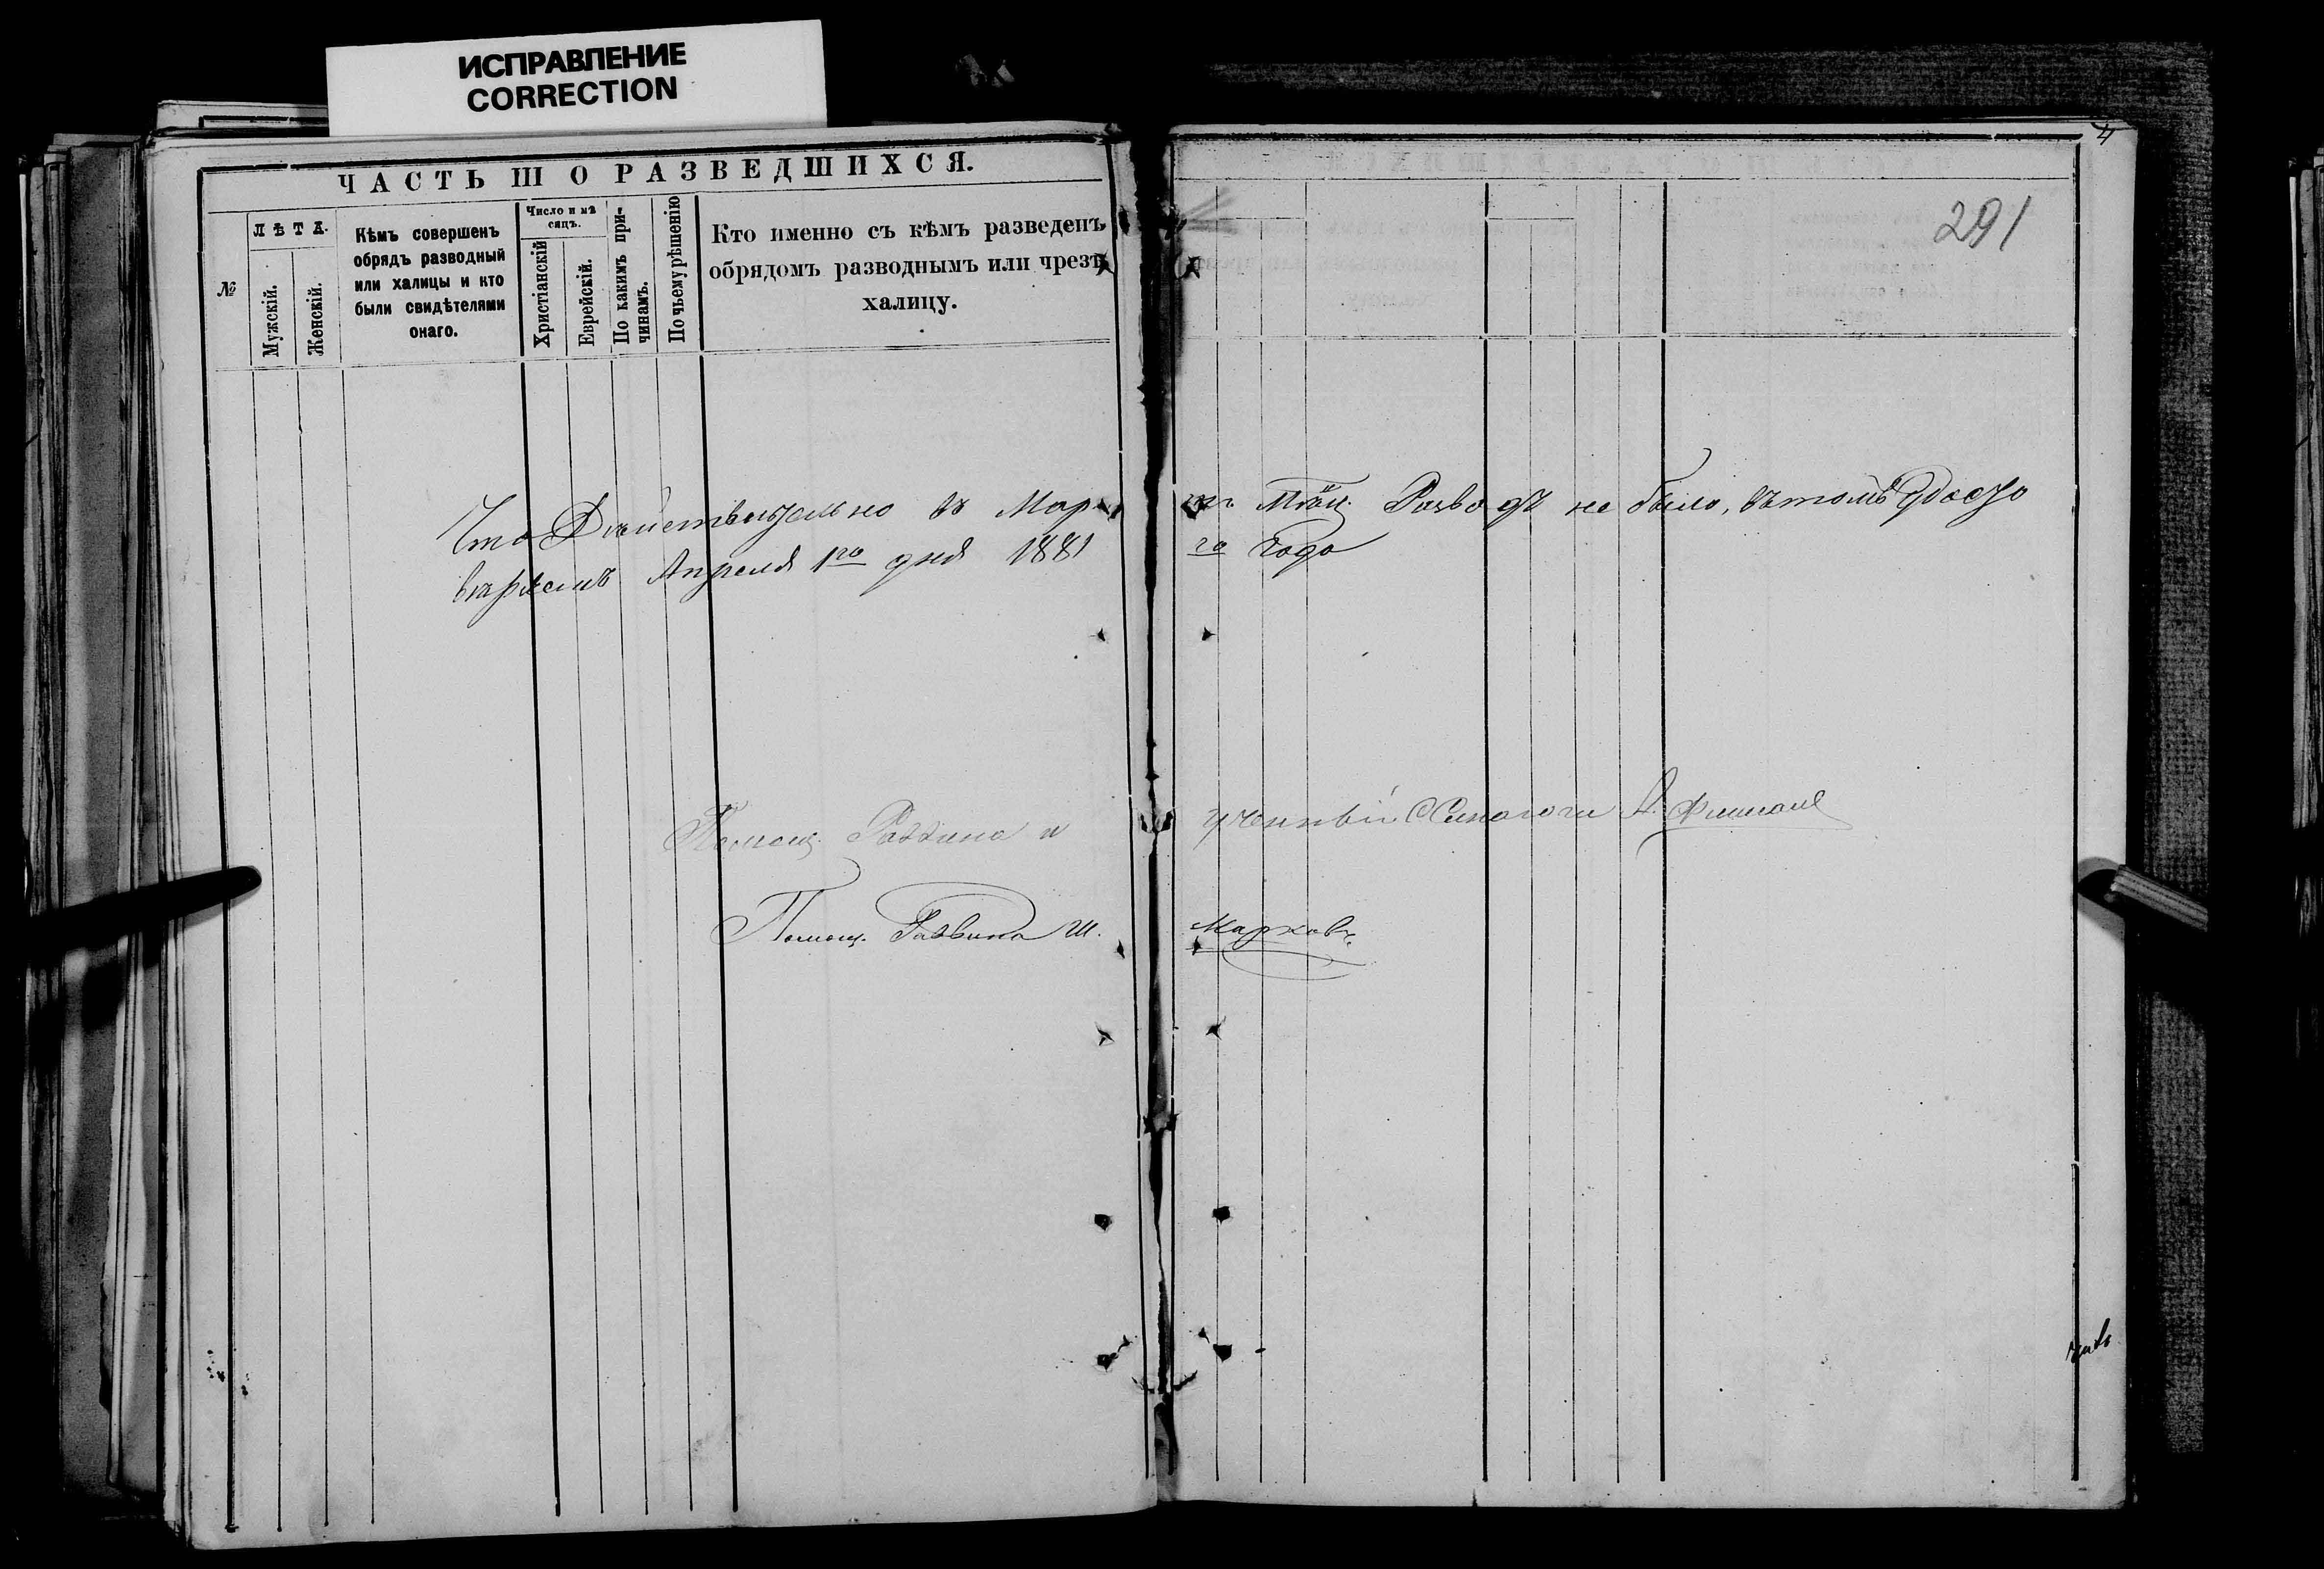 ИСПРАВЛЕНИЕ
CORRECTION
ЧАСТЬ III О РАЗВЕДШИХСЯ.
№
ЛѢТА.
Мужскій.
Женскій.
Кѣмъ совершенъ
обрядъ разводный
или халицы и кто
были свидѣтелями
онаго.
Число и мѣ
сяцъ.
Христіанскій
Еврейскій.
По какимъ при-
чинамъ.
По чьему рѣшенію
Кто именно съ кѣмъ разведенъ
обрядомъ разводнымъ или чрезъ
халицу.
4
291
Что Дѣйствительно въ Мар Мѣц. Разводъ не было, въ томъ Удосто
вѣряемъ Апреля 1го дня 1881 го Года
Помощ. Раввина и ученный Синагоги А.
Помощ. Раввина Ш. Марковъ